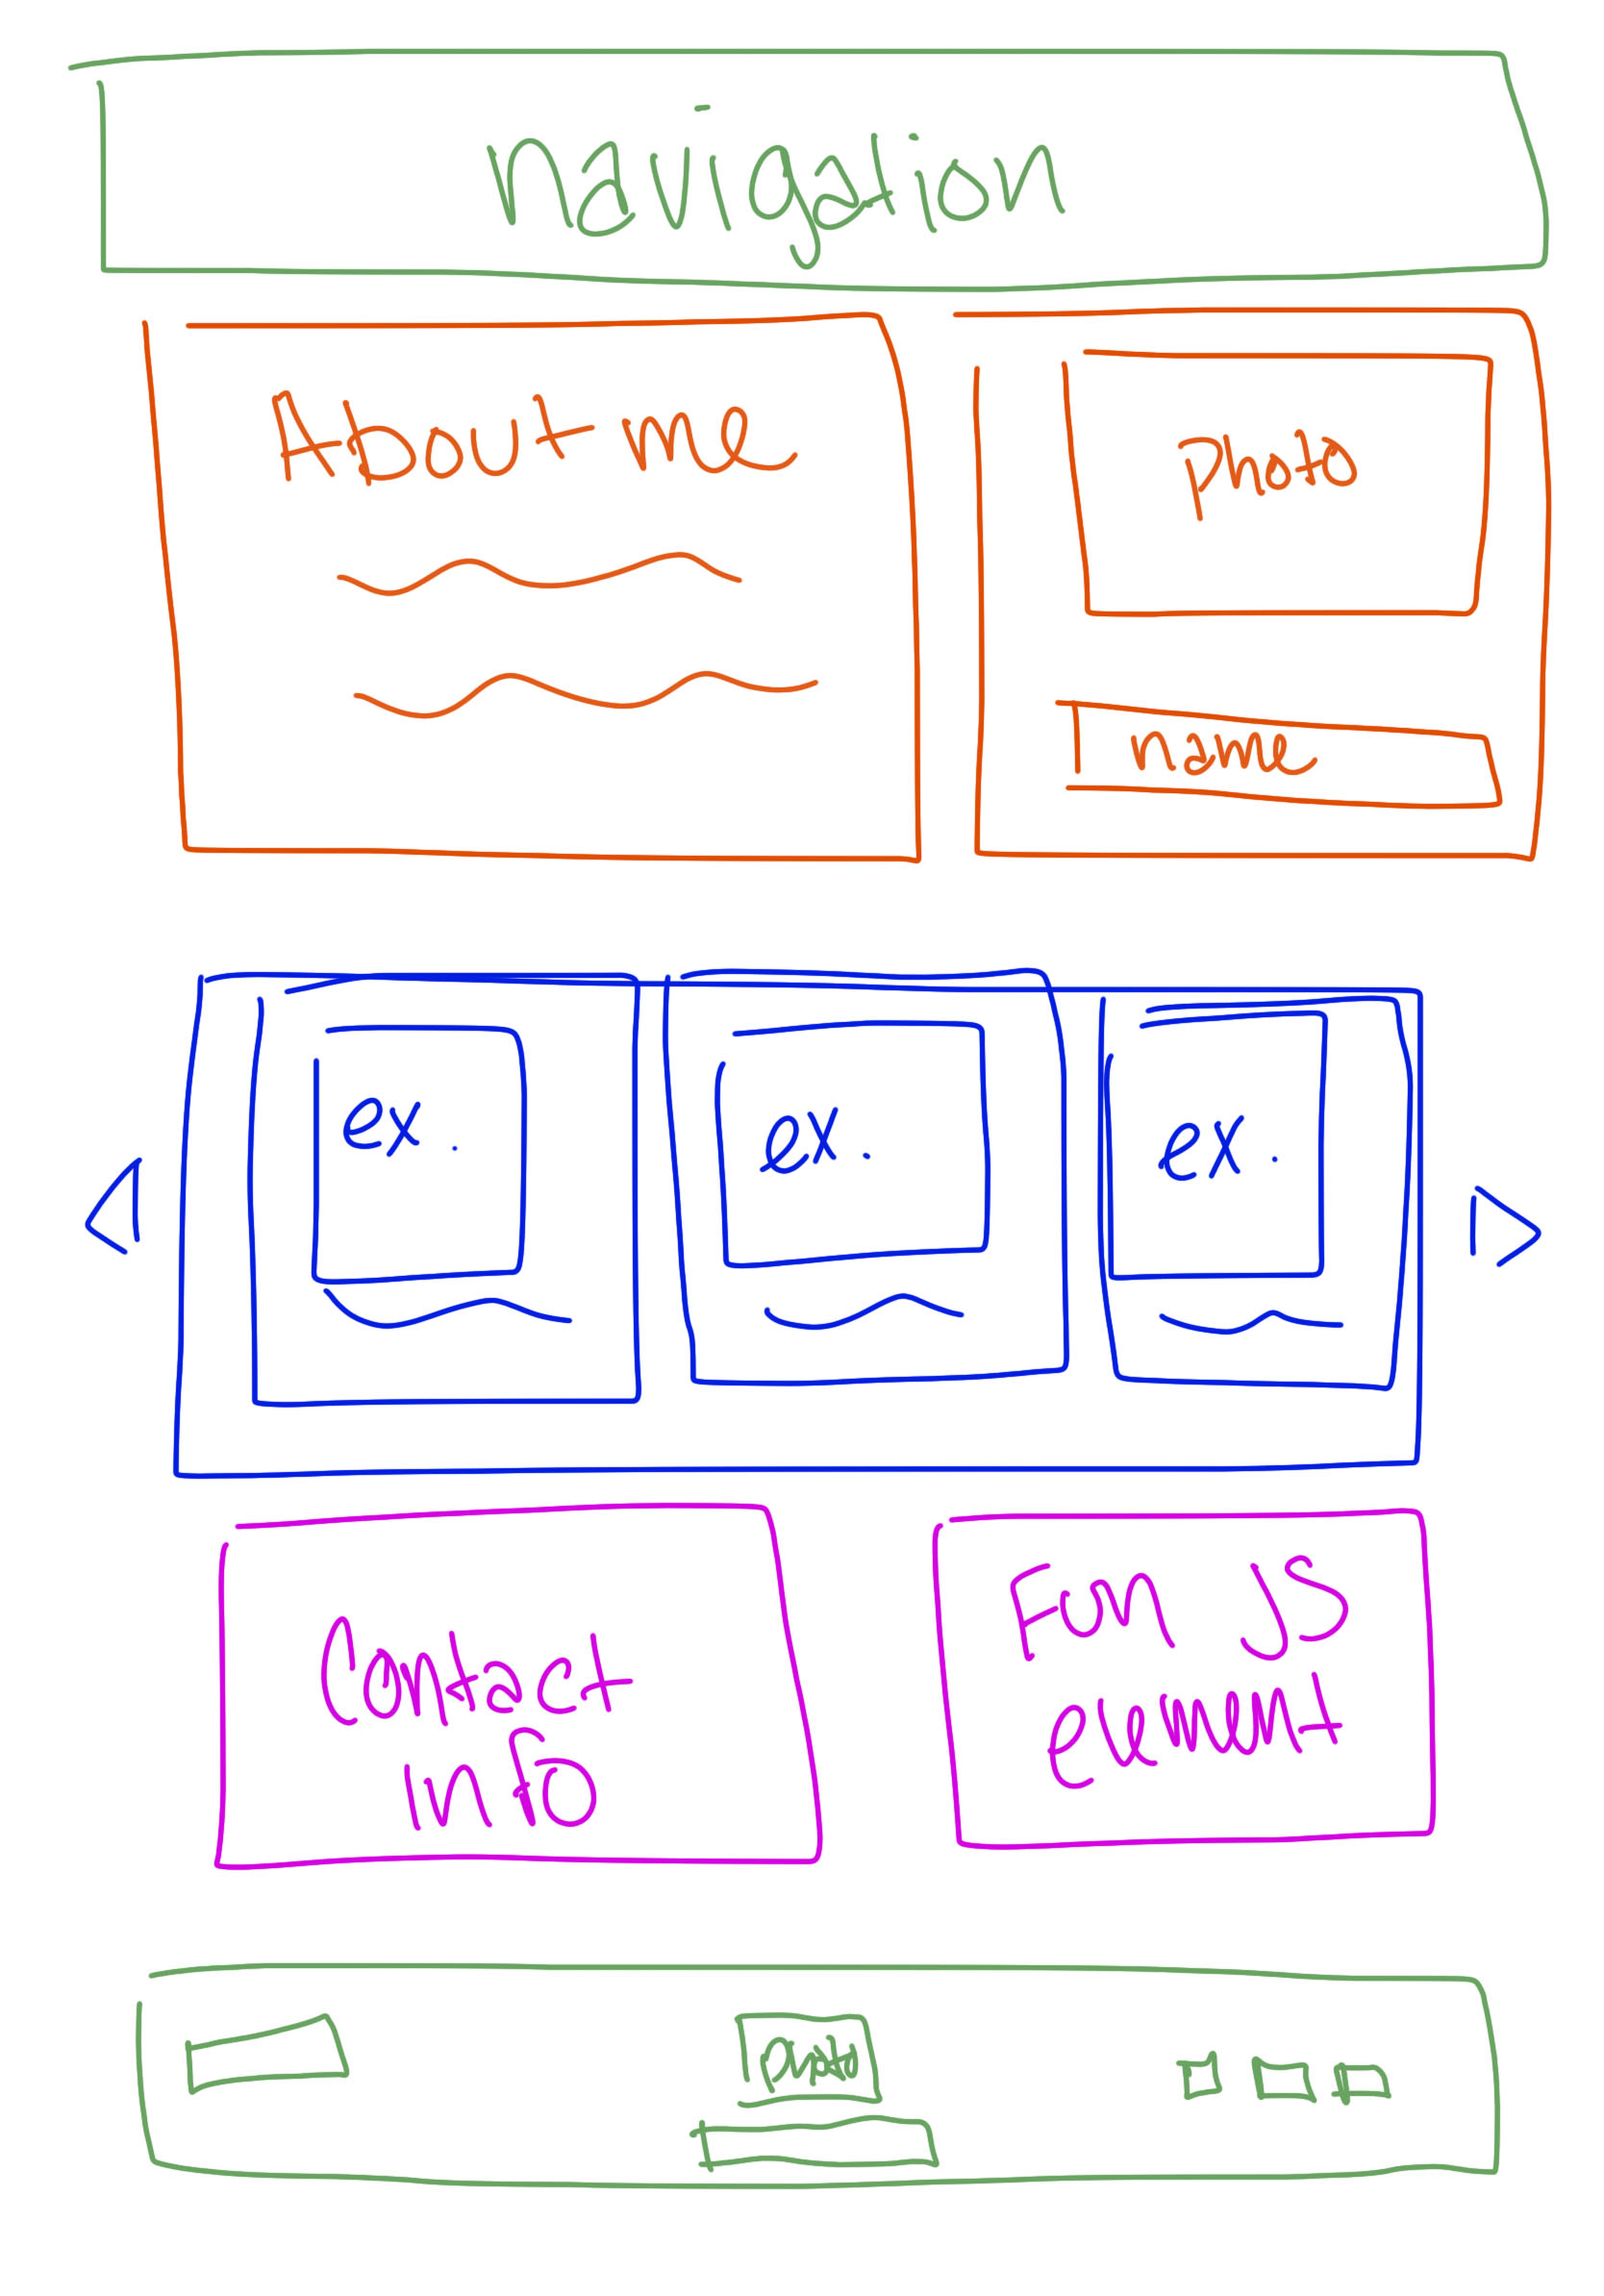 Navigation
About me
photo
name
ex.
ex.
ex.
Contact
info
Fun JS
element